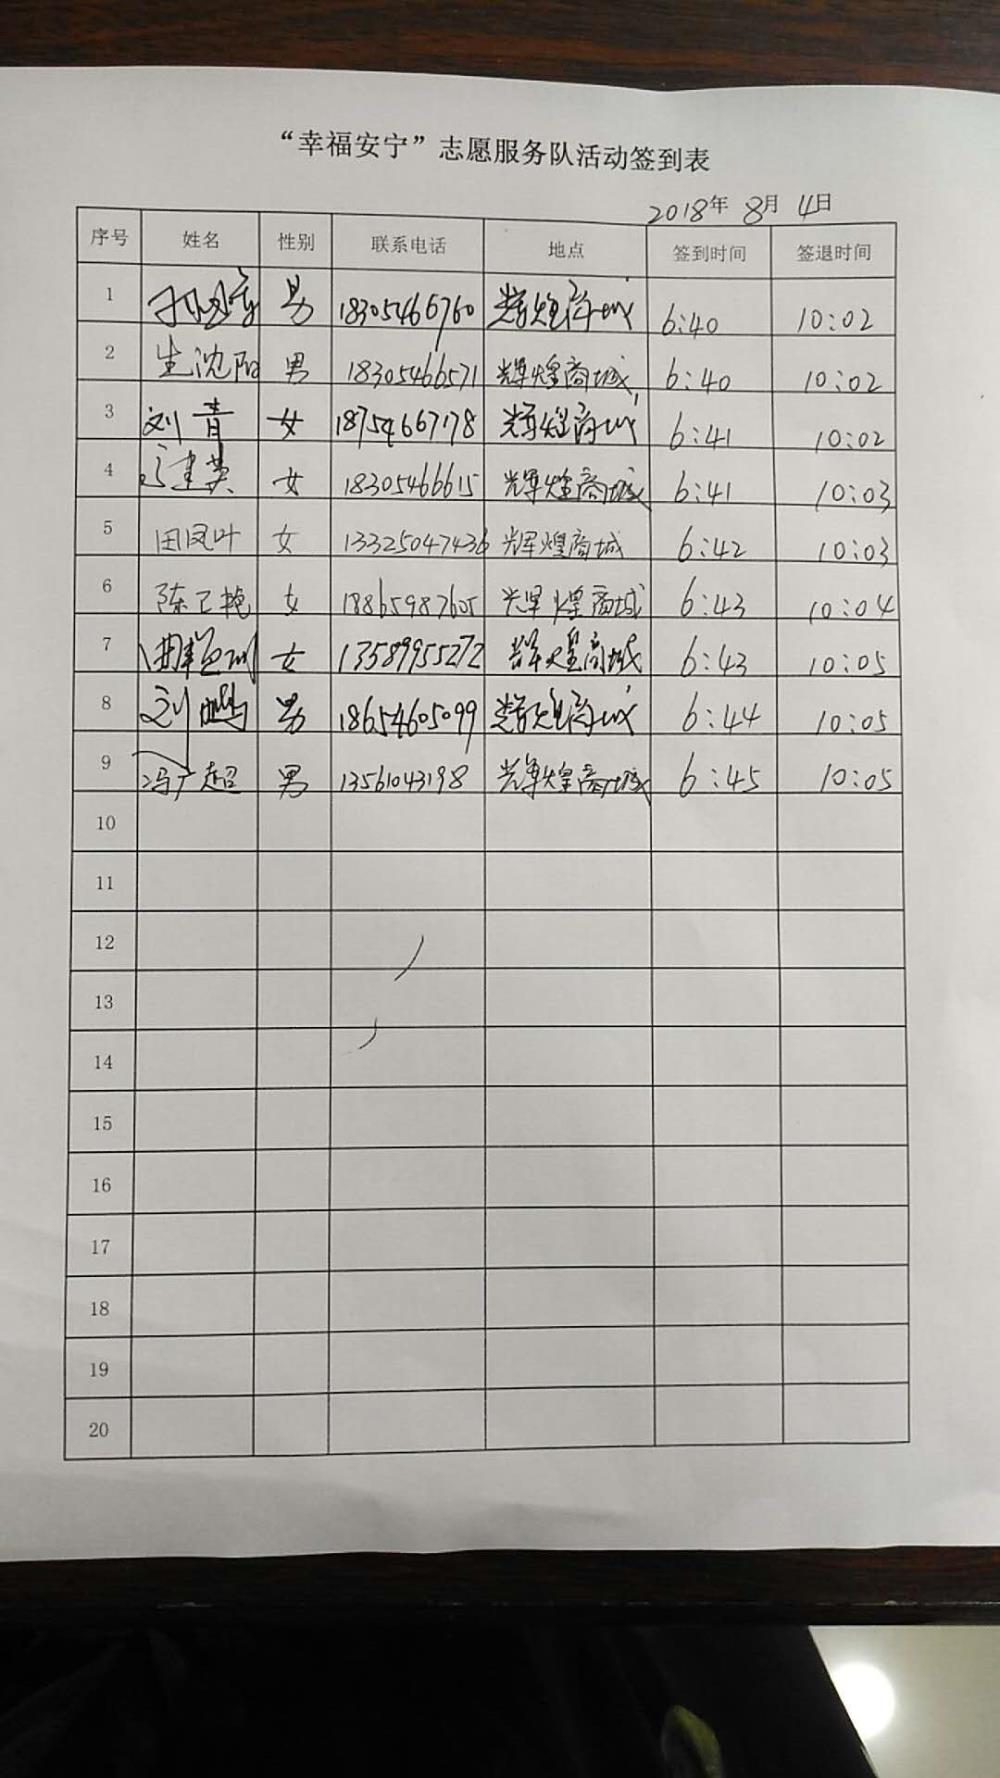 “幸福安宁”志愿服务队活动签到表
2018年 8月 4日
序号 姓名 性别 联系电话 地点 签到时间 签退时间
1 男 18305466760 辉煌商城 6:40 10:02
2 生沈阳 男 18305466571 辉煌商城 6:40 10:02
3 刘青 女 18754667178 辉煌商城 6:41 10:02
4 女 18305466615 辉煌商城 6:41 10:03
5 田凤叶 女 13325047436 辉煌商城 6:42 10:03
6 女 18865987605 辉煌商城 6:43 10:04
7 女 13589955272 辉煌商城 6:43 10:05
8 刘鹏 男 18654605099 辉煌商城 6:44 10:05
9 冯广超 男 13561043198 辉煌商城 6:45 10:05
10
11
12
13
14
15
16
17
18
19
20